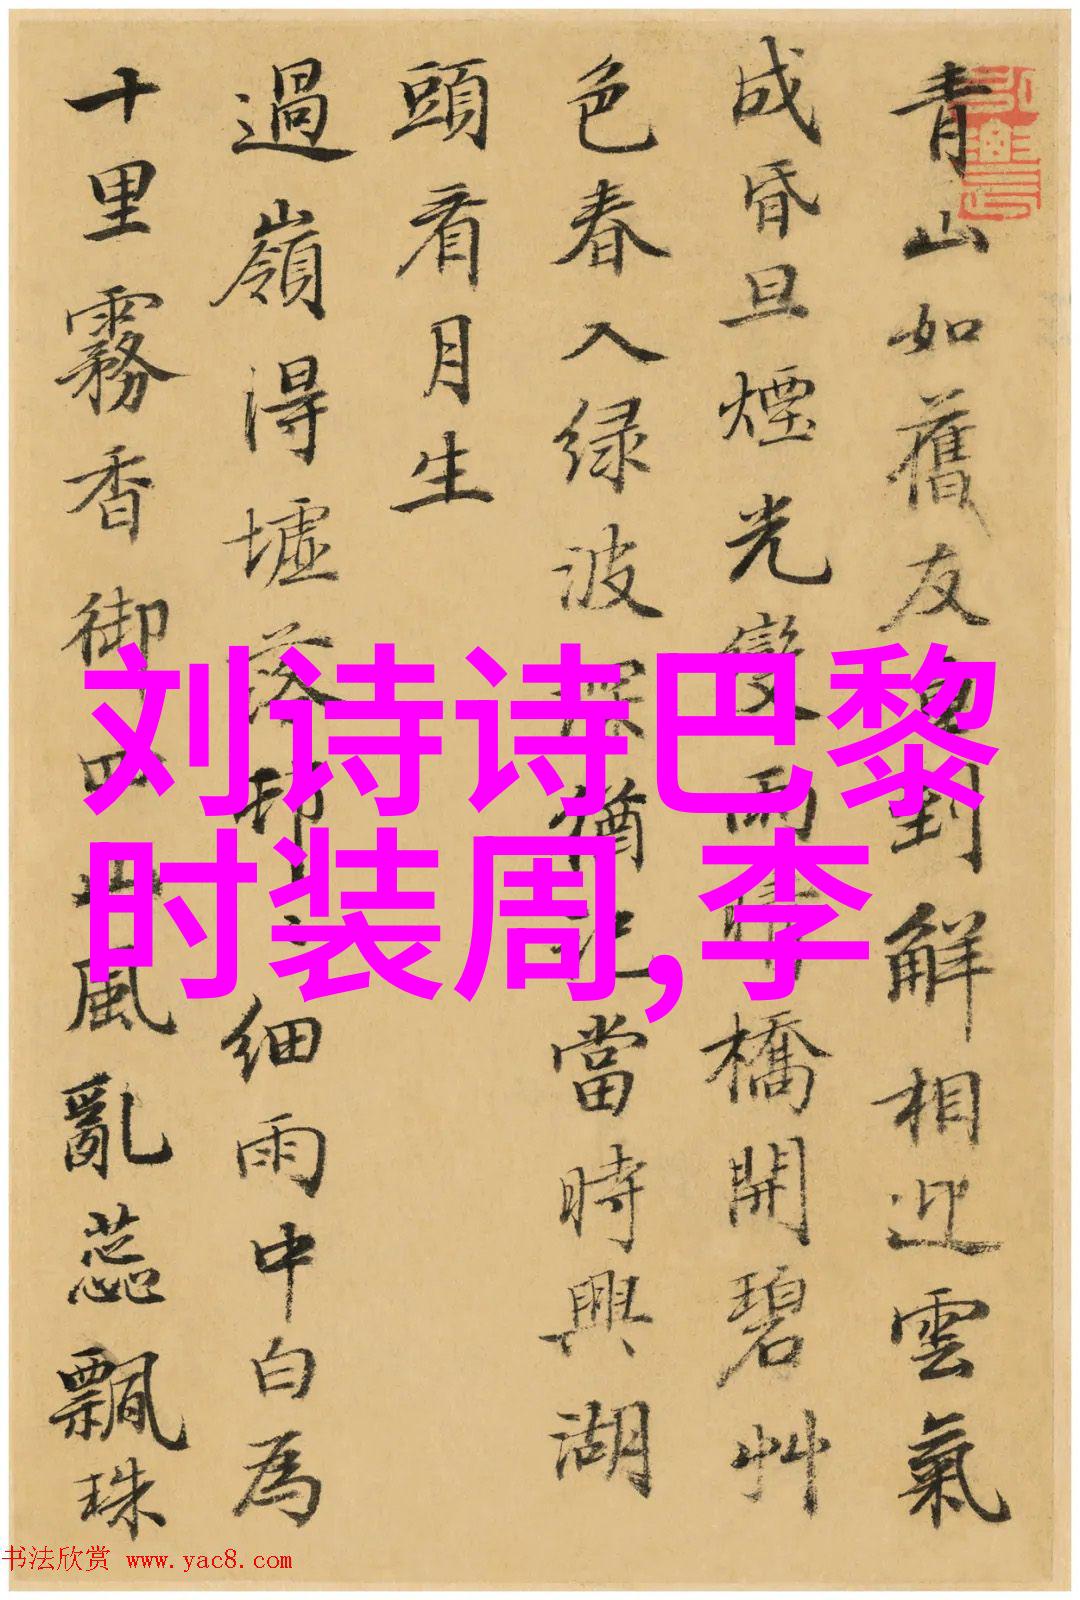 青山如舊友到解相迎雲氣
成昏旦煙光變雨晴橋開碧艸
色春入绿波深猶記當時興湖
頭看月生
過嶺得墟落邨〻細雨中白為
十里霧香御四山風亂蕊飄珠
刘诗诗巴黎
时装周,李
书法欣赏 www.yac8.com